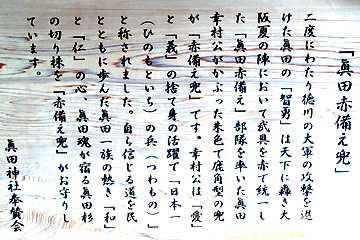 「真田赤備え兜」
二度にわたり徳川の大軍の攻撃を退
けた真田の「智勇」は天下に轟き大
阪夏の陣において武具を赤で統一し
た「真田赤備え」部隊を率いた真田
幸村公がかぶった朱色で鹿角型の兜
が「赤備え兜」です。幸村公は「愛」
と「義」の捨て身の活躍で「日本一
（ひのもといち）の兵（つわもの）」
と称されました。自ら信じる道を民
とともに歩んだ真田一族の熱き「和」
と「仁」の心、真田魂が宿る真田杉
の切り株を「赤備え兜」がお守りし
ています。
眞田神社奉賛会